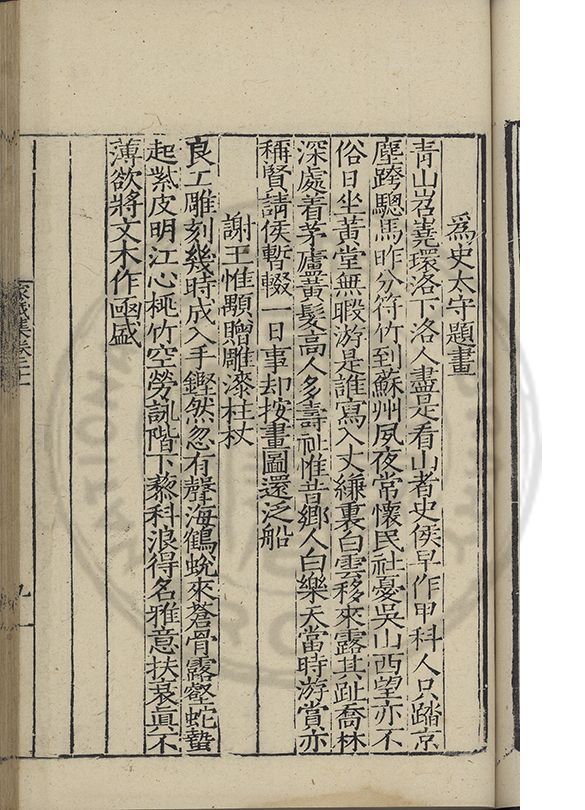 爲史太守題畫
青山岧嶤環洛下洛人盡是看山者史侯早作甲科人只踏京
塵跨驄馬昨分符竹到蘇州夙夜常懷民社憂吳山西望亦不
俗日坐黃堂無暇游是誰寫入丈縑裏白雲移來露其趾喬林
深處着茅廬黃髮高人多壽祉惟昔鄉人白樂天當時游賞亦
稱賢請侯暫輟一日事却按畫圖還泛船
謝王惟顒贈雕漆柱杖
良工雕刻幾時成入手鏗然忽有聲海鶴蛻來蒼骨露壑蛇蟄
起紫皮明江心桃竹空勞訊階下藜科浪得名雅意扶衰眞不
薄欲將文木作𠀋盛
家藏集卷二十
九